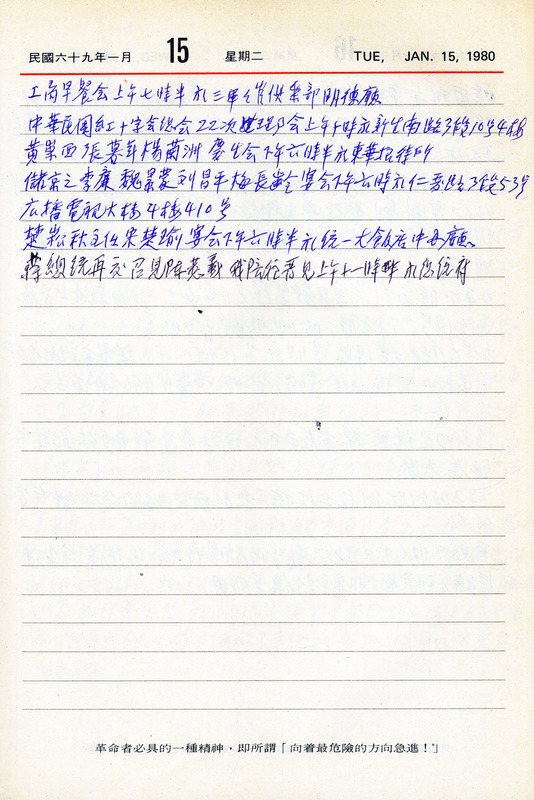 民國六十九年一月 15 星期二 TUE, JAN. 15, 1980
工商早餐会上午七時半於三軍軍官俱樂部明德廳
中華民国紅十字会總会22次理事会上午十時於新生南路3段10号4樓
黃 張暮年楊蘭洲慶生会下午六時半於東華招待所
儲京之李廉魏景蒙刘昌平梅長齡宴会下午六時於仁愛路3段53号
広播電視大樓4樓410号
楚崧秋主任宋楚瑜宴会下午六時半於統一大飯店中 廳
蔣總統再次召見陳 我陪往晉見上午十一時半於总統府
革命者必具的一種精神，即所謂「向着最危險的方向急進！」